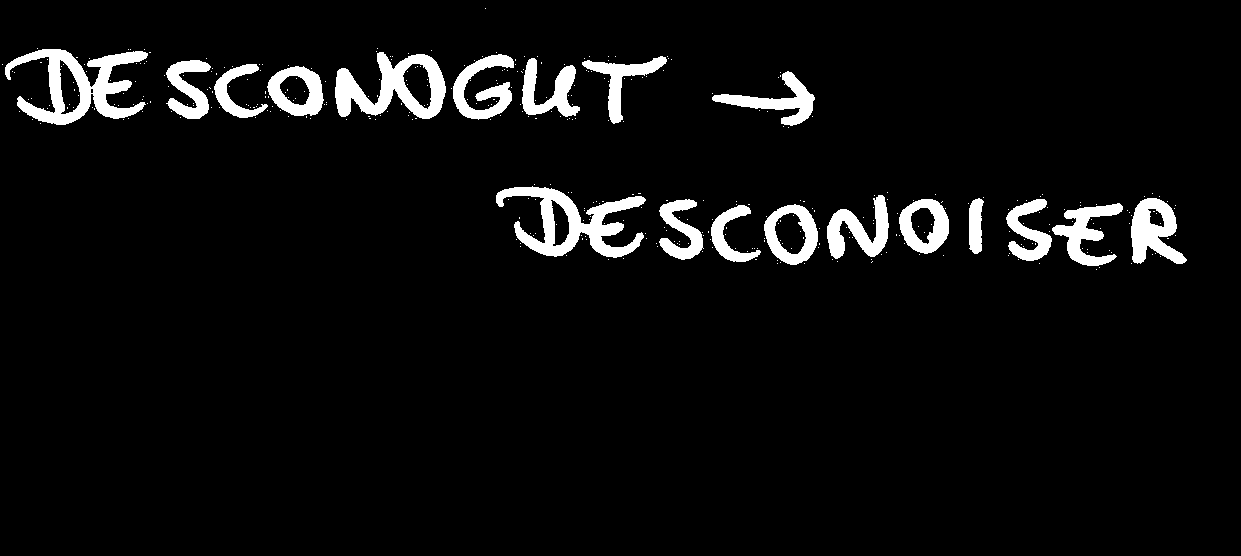 DESCONOGUT →
DESCONOISER